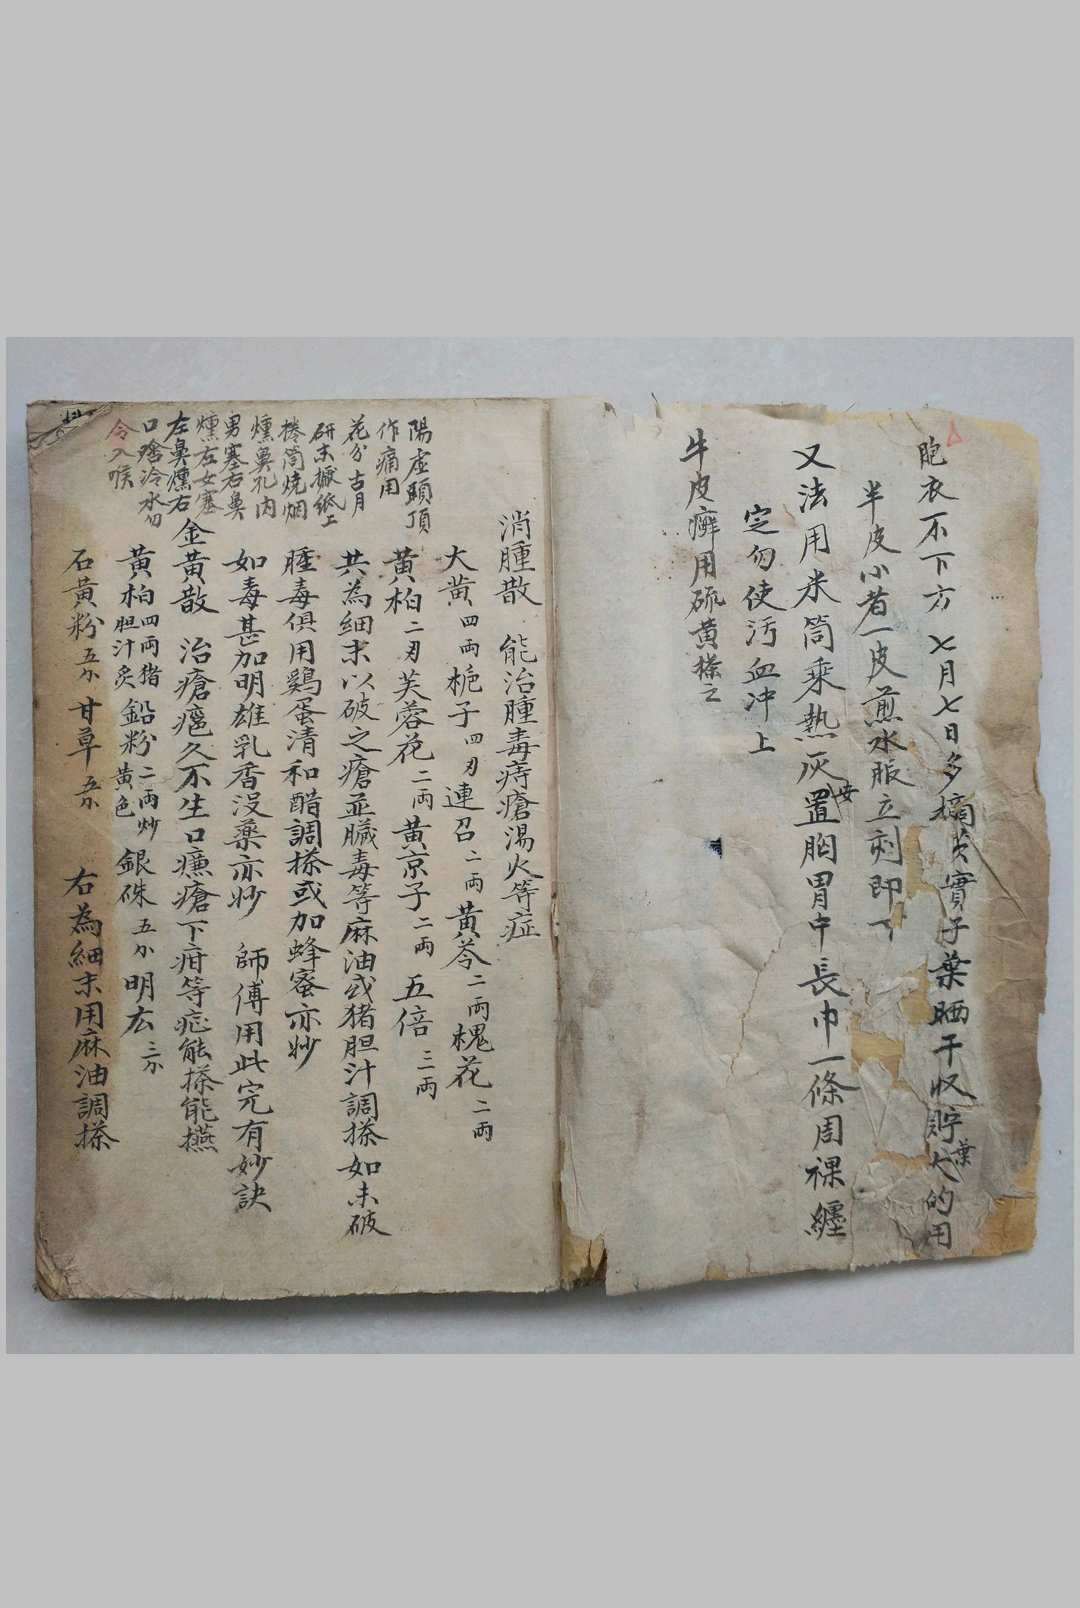 胞衣不下方 七月七日多摘芡實子葉晒干收貯大葉的用
半皮小者一皮煎水服立刻即下
又法用米筒乘熱灰安置胸胃中長巾一條周裸纏
定勿使污血冲上
牛皮癬用硫黄搽之
消腫散 能治腫毒痔瘡湯火等症
大黄四両栀子四刃連召二両黄芩二両槐花二両
黄柏二刃芙蓉花二両黄京子二両五倍三両
共為細末以破之瘡並臟毒等麻油或猪胆汁調搽如未破
腫毒俱用鷄蛋清和醋調搽或加蜂蜜亦妙
如毒甚加明雄乳香没藥亦妙 師傅用此完有妙訣
金黄散 治瘡瘟久不生口癰瘡下疳等症能搽能
黄柏四両猪胆汁炙鉛粉二両炒黄色銀硃五分明広三分
石黄粉五分甘草五分 右為細末用麻油調搽
陽虚頭頂
作痛用
花分古月
研末擦紙上
捲筒燒烟
燻鼻孔内
男塞右鼻
燻左女塞
左鼻燻右
口噙冷水勿
令入喉